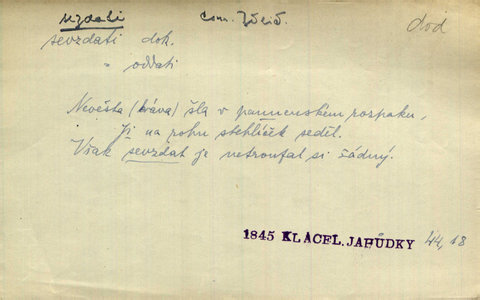 sezdati
dod
sevzdati dok.
= oddati
Nevěsta (kráva) šla v pannenském rozpaku,
Jí na rohu stehlíček seděl.
Však sevzdat je netroufal si žádný.
1845 KLÁCEL, JAHŮDKY 44, 18